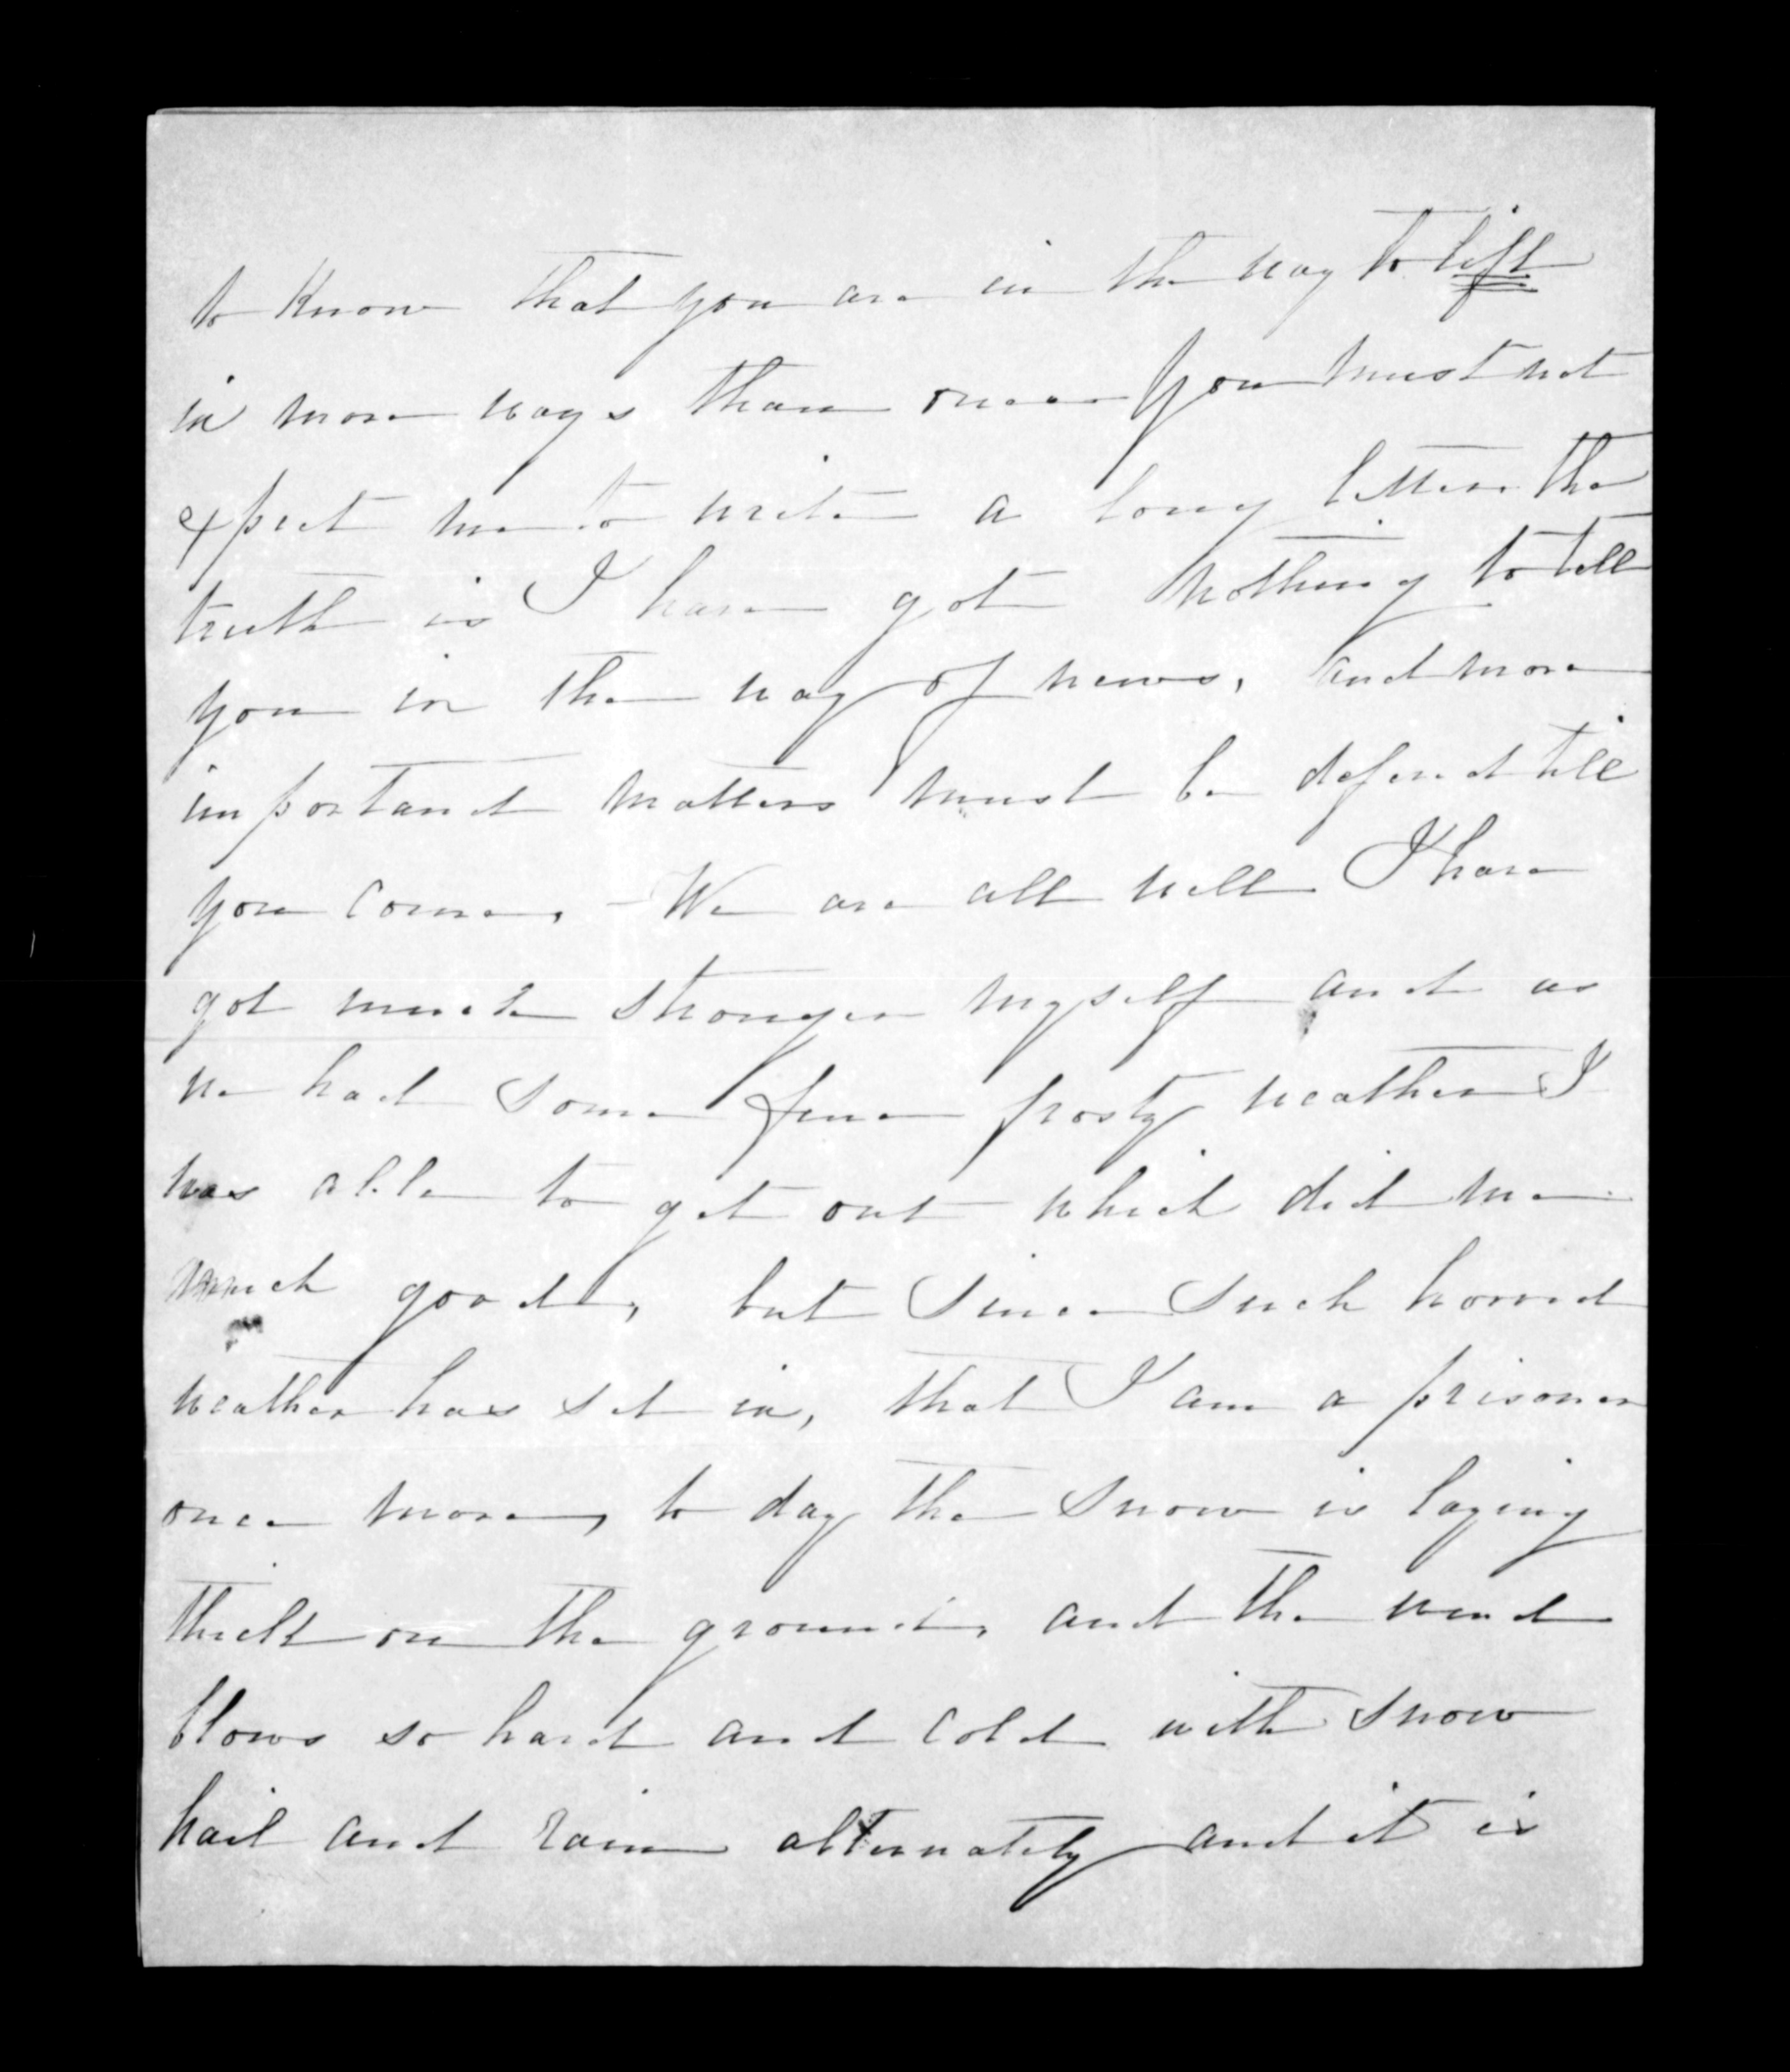 to Know that you are in the way to lift
in more ways than one You must not
expect me to write a long letter. the
truth is I have got nothing to tell
you in the way of news, and more
important matters must be deferred till
you come, - We are all well I have
got much stronger myself and as
we had some fine frosty weather I
was able to get out which did me
much good, but since such horrid
weather has set in, that I am a prisoner
once more, to day the snow is laying
thick on the ground, and the wind
blows so hard and cold with snow
hail and rain alternately and it is